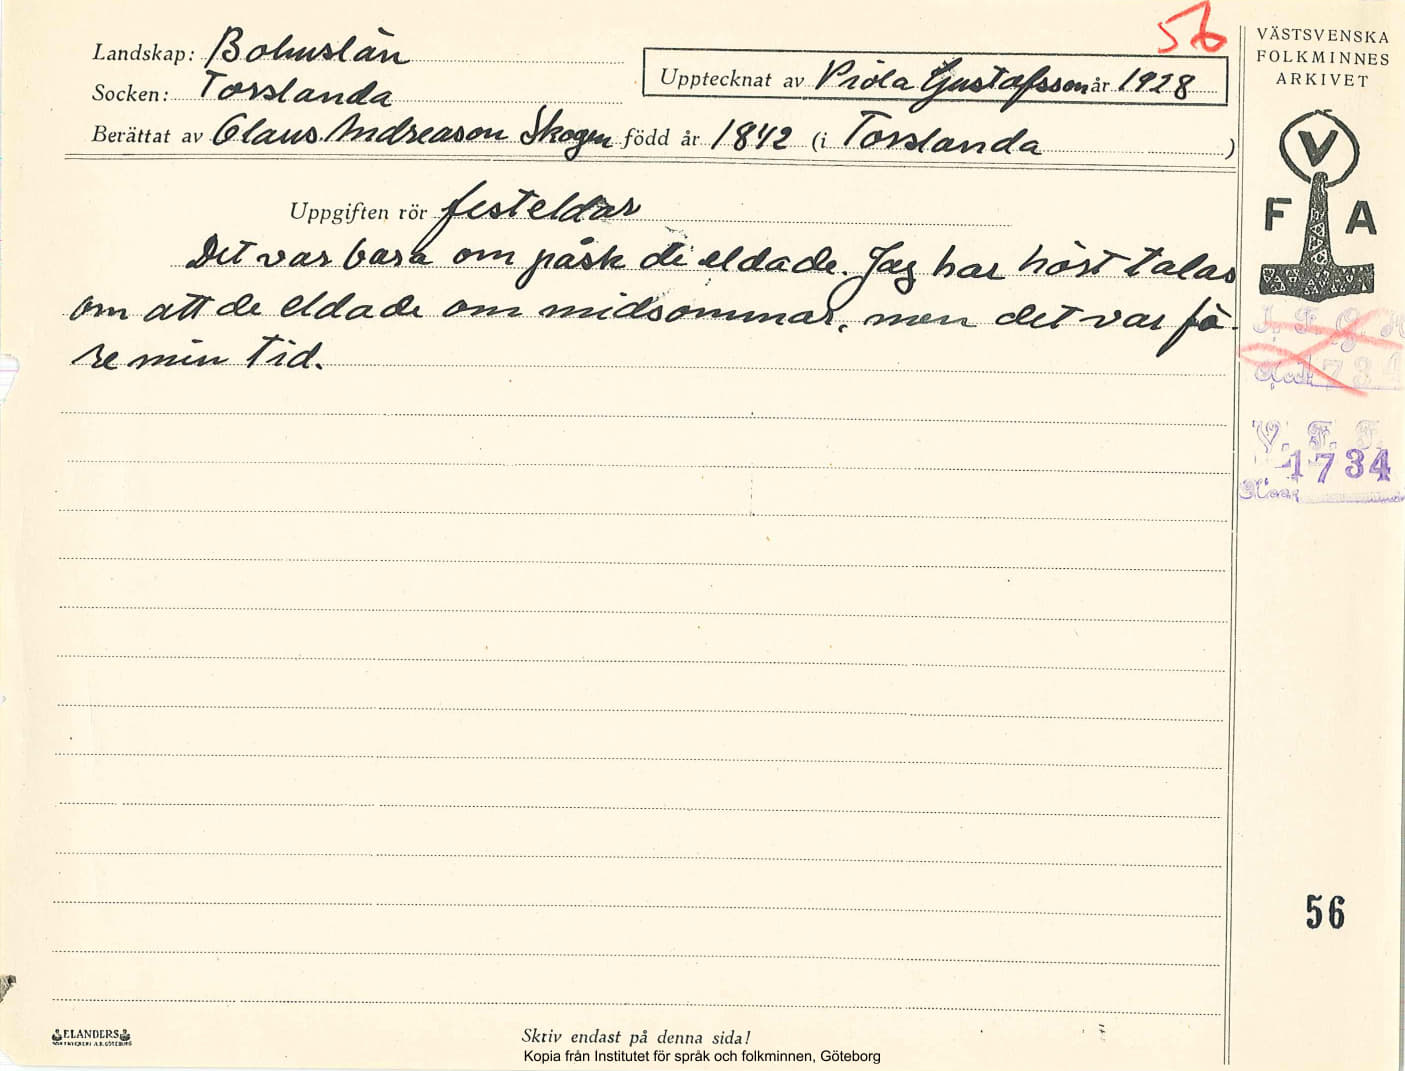 56
Landskap: Bohuslän
Socken: Torslanda
Upptecknat av Viola Gustafsson år 1928
Berättat av Claus Andreason Skogen född år 1842 (i Torslanda)
Uppgiften rör festeldar
Det var bara om påsk de eldade. Jag har hört talas
om att de eldade om midsommar, men det var fö-
re min tid.
VÄSTSVENSKA
FOLKMINNES
ARKIVET
V
F A
1734
V. F. F.
1734
56
ELANDERS
Skriv endast på denna sida!
Kopia från Institutet för språk och folkminnen, Göteborg